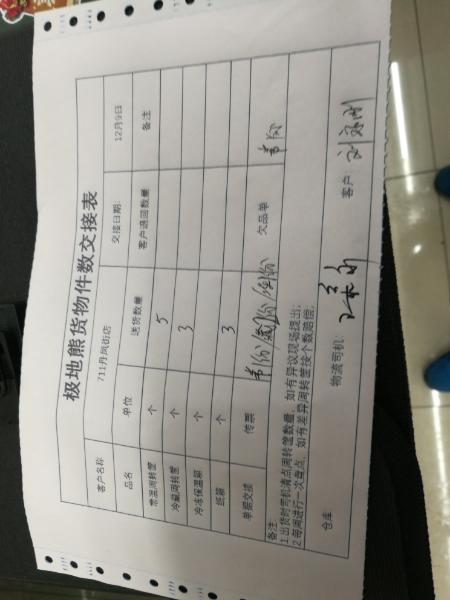 极地熊货物件数交接表
客户名称 711丹凤街店 交接日期: 12月9日
品名 单位 送货数量 客户退回数量 备注
常温周转筐 个 5
冷藏周转筐 个 3
冷冻保温箱 个
纸箱 个 3
单据交接 传票 欠品单
备注
1.出货时司机清点周转筐数量,如有异议现场提出;
2.每周进行一次盘点,如有差异周转筐按个数赔偿;
仓库 物流司机: 客户: